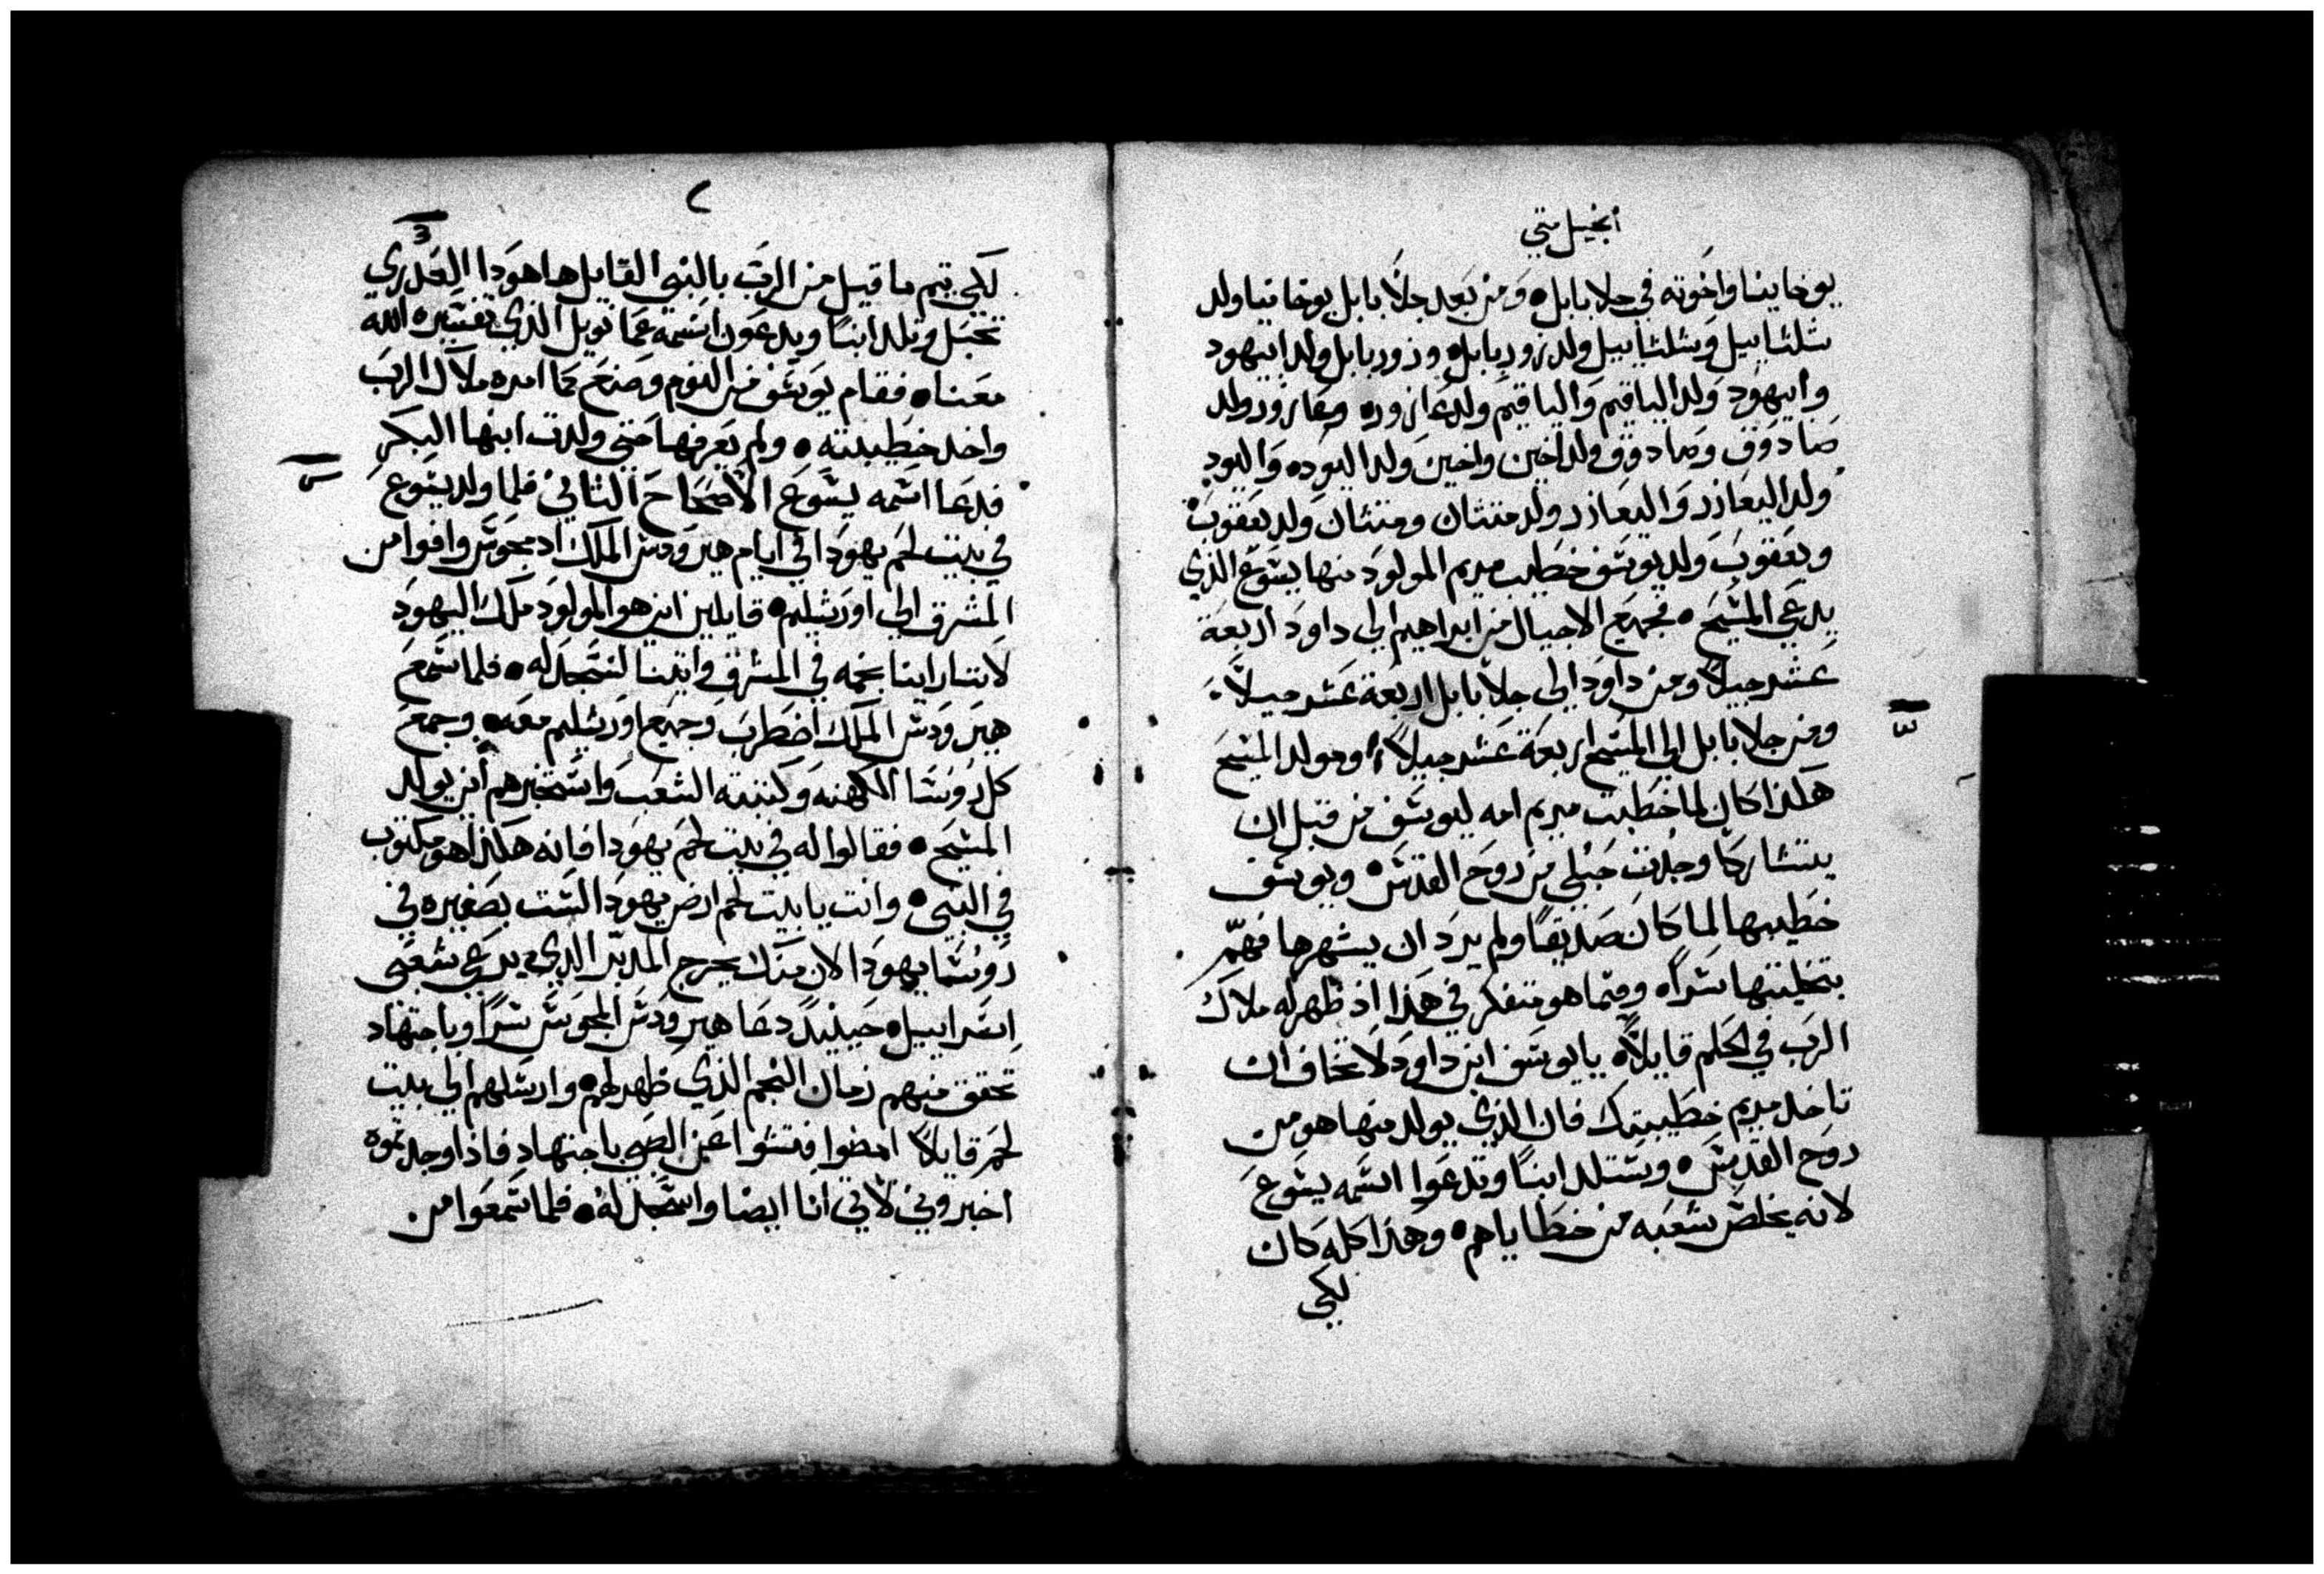 أنجيل متي
يوخانينا واخوته في جلا بابل ٥ ومن بعد جلا بابل يوخانيا ولد
شلتاييل وشلتاييل ولد زوربابل ٥ وزوربابل ولد ابيهود
وأبيهود ولد الياقيم والياقيم ولد عازور ٥ وعازور ولد
صادوق وصادوق ولد اخين واخين ولد اليود ٥ واليود
ولد اليعازر واليعازر ولد متثان ومتثان ولد يعقوب
ويعقوب ولد يوسف خطيب مريم المولود منها يسوع الذي
يدعي المسيح ٥ فجميع الاجيال من ابراهيم الى داود اربعة
عشر جيلاً ومن داود الى جلا بابل اربعة عشر جيلاً
ومن جلا بابل الى المسيح اربعة عشر جيلاً ومولد المسيح
هكذا كان لما خطبت مريم امه ليوسف من قبل ان
يتشاركا وجدت حبلي من روح القدس ٥ ويوسف
خطيبها لما كان صديقاً ولم يرد ان يشهرها فهمّ
بتخليتها سراً ٥ وفيما هو متفكر في هذا اذ ظهر له ملاك
الرب في الحلم قايلاً ٥ يا يوسف ابن داود لا تخاف ان
تاخد مريم خطيبتك فان الذي يولد منها هو من
روح القدس ٥ وستلد ابناً وتدعوا اسمه يسوع
لانه يخلص شعبه من خطاياهم ٥ وهذا كله كان
لكي
٢
لكي يتم ما قيل من الرب بالنبي القايل ها هودا العدري
تحبل وتلد ابناً ويدعون اسمه عمانويل الذي تفسيره الله
معنا ٥ فقام يوسف من النوم وصنع كما امره ملاك الرب
واخد خطيبته ٥ ولم يعرفها حتي ولدت ابنها البكر
فدعا اسمه يسوع الأصحاح الثاني فلما ولد يسوع
في بيت لحم يهودا في ايام هيرودس الملك اد مجوس وافوا من
المشرق الى اورشليم ٥ قايلين اين هو المولود ملك اليهود
لاننا راينا نجمه في المشرق واتينا لنسجد له ٥ فلما سمع
هيرودس الملك اضطرب وجميع اورشليم معه ٥ وجمع
كل روسا الكهنه وكتبته الشعب واستخبرهم أين يولد
المسيح ٥ فقالوا له في بيت لحم يهودا فانه هكذا هو مكتوب
في النبي ٥ وانت يا بيت لحم ارض يهودا لست بصغيره في
روسا يهودا لان منك يخرج المدبر الذي يرعي شعبى
اسراييل ٥ حينيدٍ دعا هيرودس المجوس سراً وباجتهاد
تحقق منهم زمان النجم الذي ظهر لهم ٥ وارسلهم الى بيت
لحم قايلاً امضوا فتشوا عن الصبي باجتهاد فاذا وجدتموه
اخبروني لأني انا ايضا واسجد له ٥ فلما سمعوا من